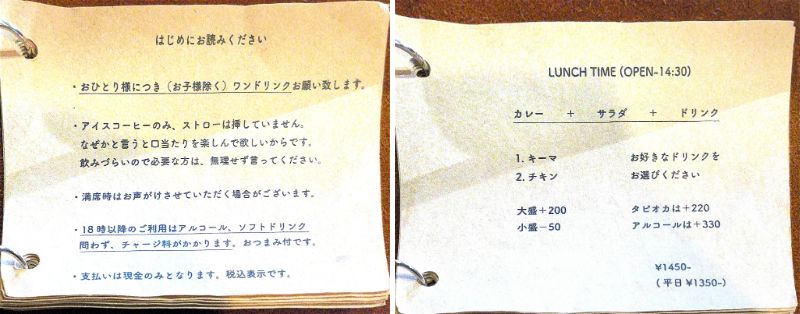 はじめにお読みください
・おひとり様につき（お子様除く）ワンドリンクお願い致します。
・アイスコーヒーのみ、ストローは挿していません。
なぜかと言うと口当たりを楽しんで欲しいからです。
飲みづらいので必要な方は、無理せず言ってください。
・満席時はお声がけさせていただく場合がございます。
・18時以降のご利用はアルコール、ソフトドリンク
問わず、チャージ料がかかります。おつまみ付です。
・支払いは現金のみとなります。税込表示です。
LUNCH TIME (OPEN-14:30)
カレー + サラダ + ドリンク
1. キーマ お好きなドリンクを
2. チキン お選びください
大盛+200 タピオカは+220
小盛-50 アルコールは+330
¥1450-
(平日 ¥1350-)